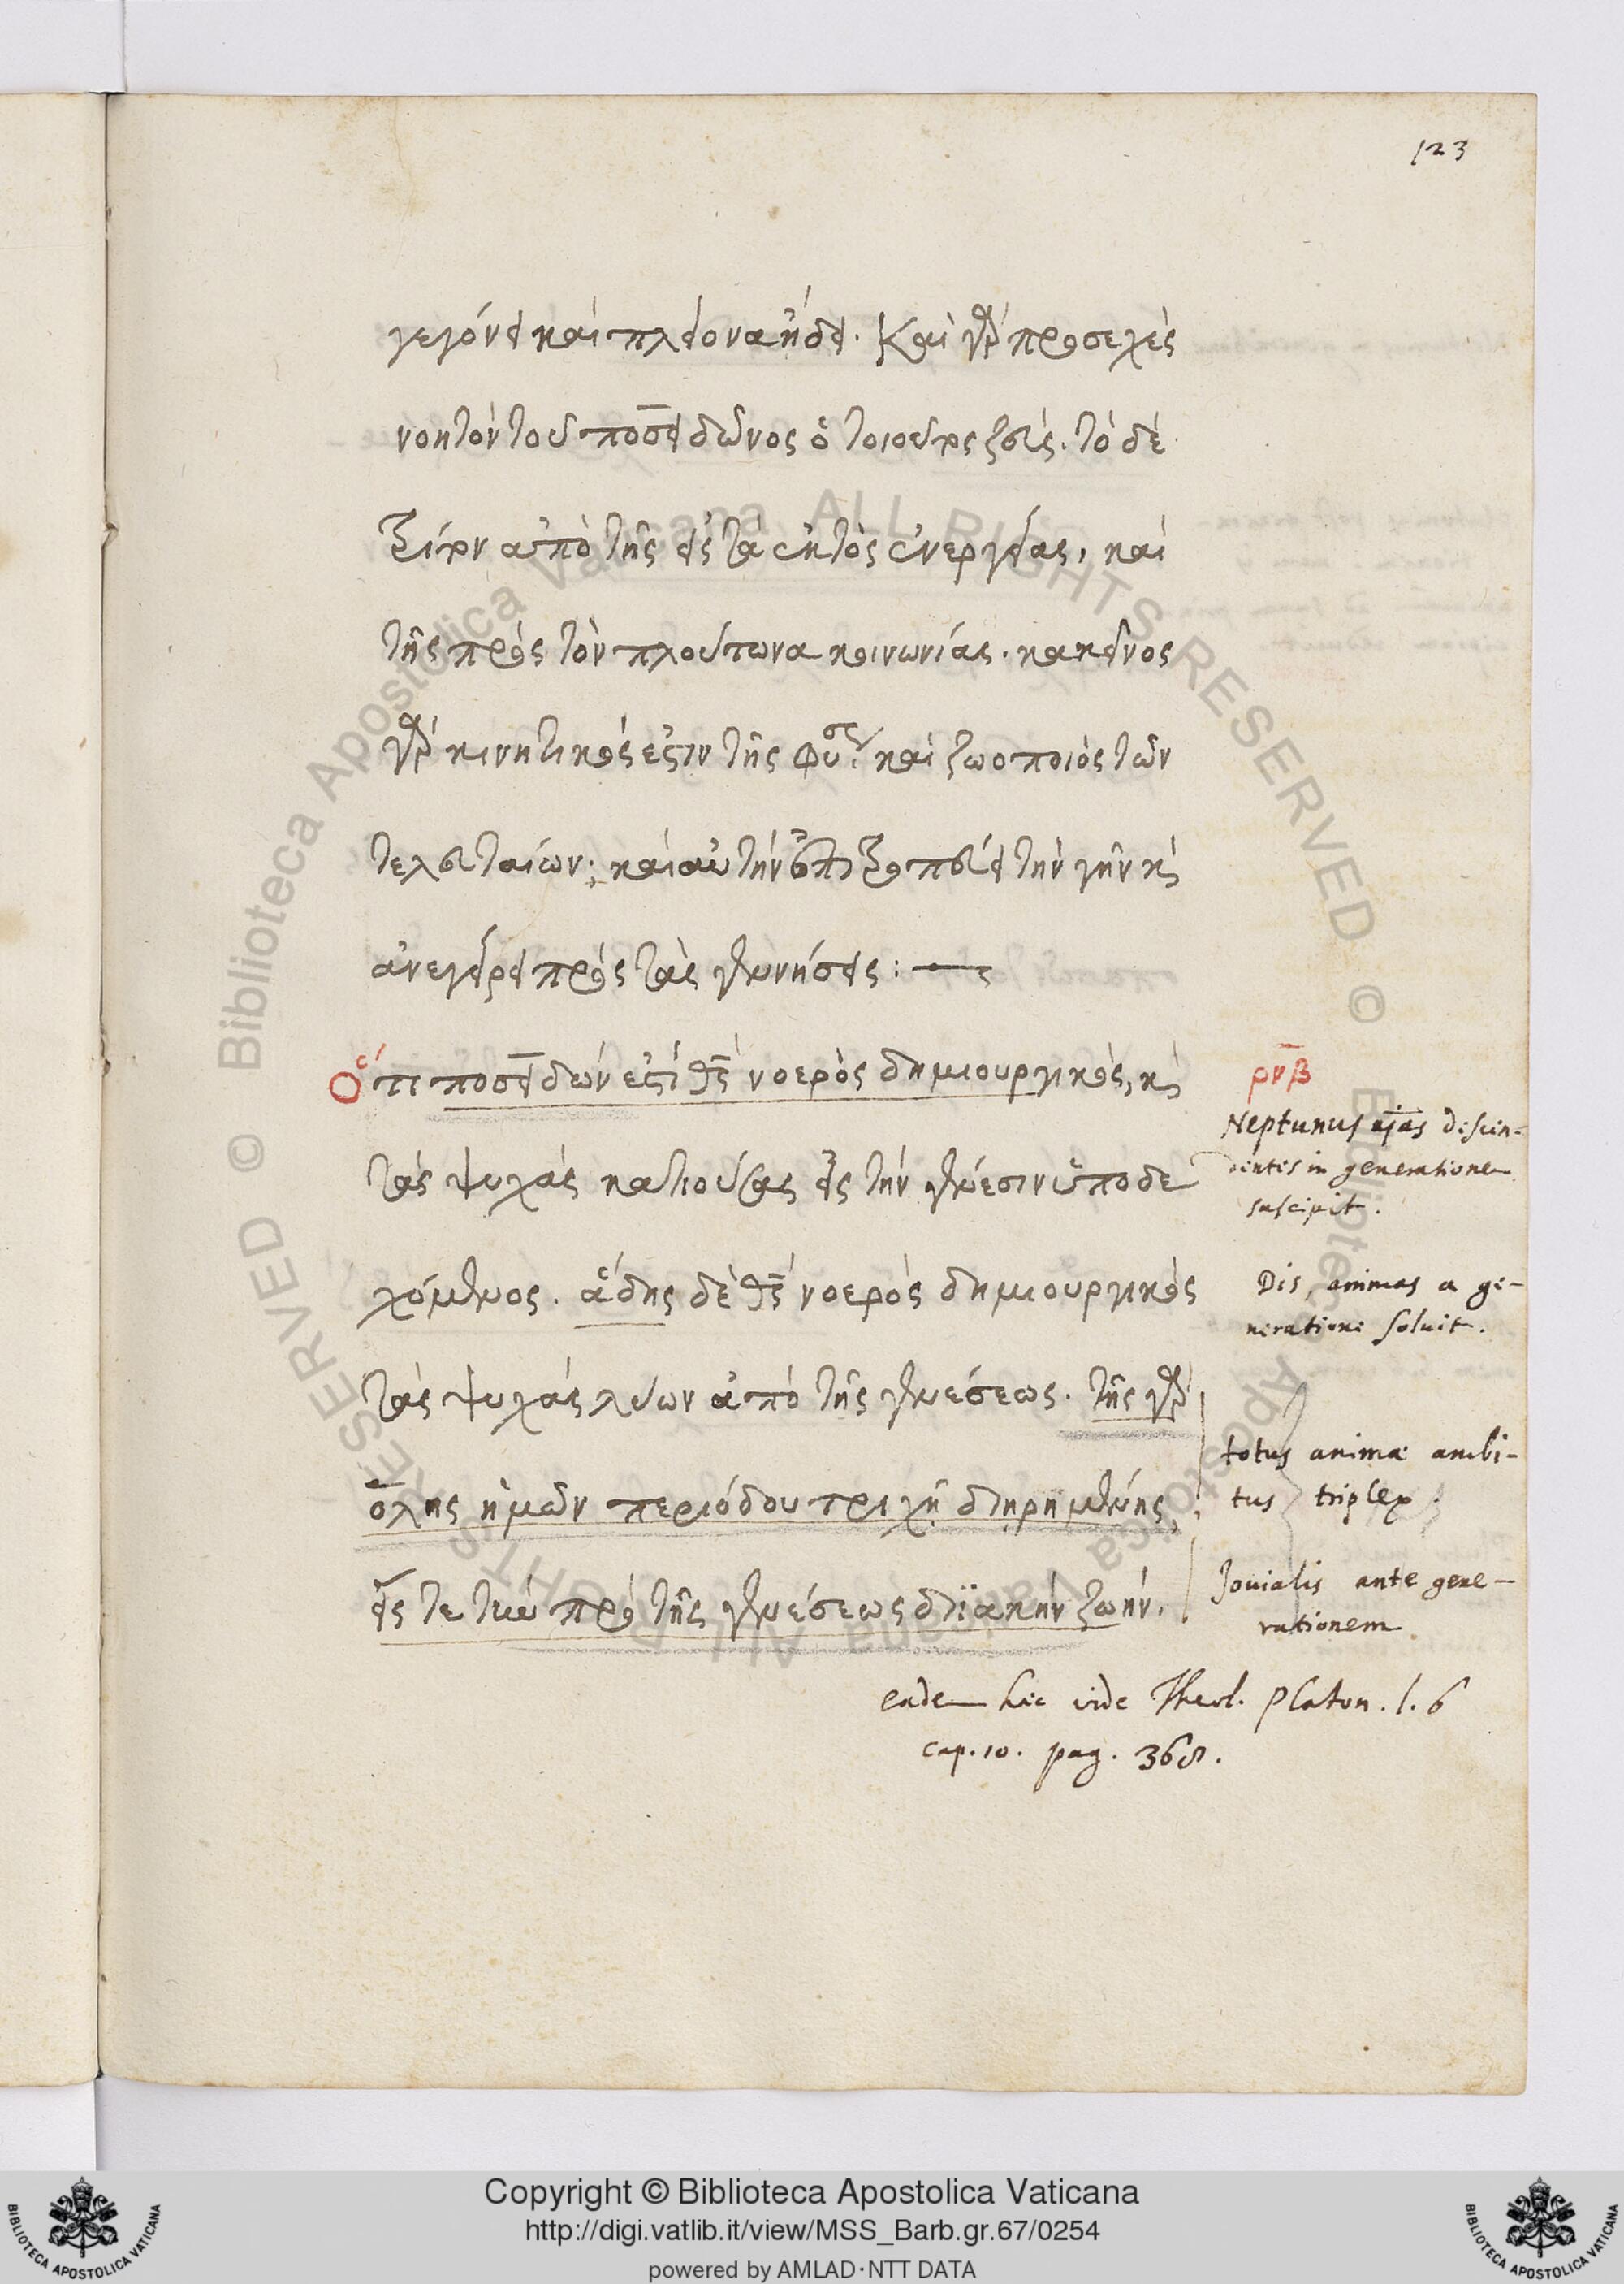 123
γεγόνει καὶ πλείονα ἤδει. Καὶ γὰρ προσεχὲς
νοητὸν τοῦ ποσειδῶνος ὁ τοιοῦτος ζεύς. τὸ δὲ
τρίτον ἀπὸ τῆς εἰς τὰ ἐκτὸς ἐνεργείας, καὶ
τῆς πρὸς τὸν πλούτωνα κοινωνίας. κακεῖνος
γὰρ κινητικός ἐστιν τῆς φύσεως καὶ ζωοποιὸς τῶν
τελευταίων· καὶ αὐτὴν ἐπιτροπεύει τὴν γῆν καὶ
ἀνεγείρει πρὸς τὰς γεννήσεις :
Ὅτι ποσειδῶν ἐστὶ θεὸς νοερὸς δημιουργικὸς, καὶ
τὰς ψυχὰς κατιούσας εἰς τὴν γένεσιν ὑποδε
χόμενος. ἅδης δὲ θεὸς νοερὸς δημιουργικὸς
τὰς ψυχὰς λύων ἀπὸ τῆς γενέσεως. τῆς γὰρ
ὅλης ἡμῶν περιόδου τριχῇ διῃρημένης,
εἴς τε τὴν πρὸ τῆς γενέσεως διϊακὴν ζωήν.
ρνβ
Neptunus aīas descen-
dentes in generatione
suscipit.
Dis, animas a ge-
neratione solvit.
totus animæ ambi-
tus triplex
Jovialis ante gene-
rationem
eadem hic vide Theol. Platon. l. 6
cap. 10. pag. 368.
Biblioteca Apostolica Vaticana ALL RIGHTS RESERVED ©
Biblioteca Apostolica Vaticana ALL RIGHTS RESERVED ©
Copyright © Biblioteca Apostolica Vaticana
http://digi.vatlib.it/view/MSS_Barb.gr.67/0254
powered by AMLAD·NTT DATA
BIBLIOTECA APOSTOLICA VATICANA
BIBLIOTECA APOSTOLICA VATICANA